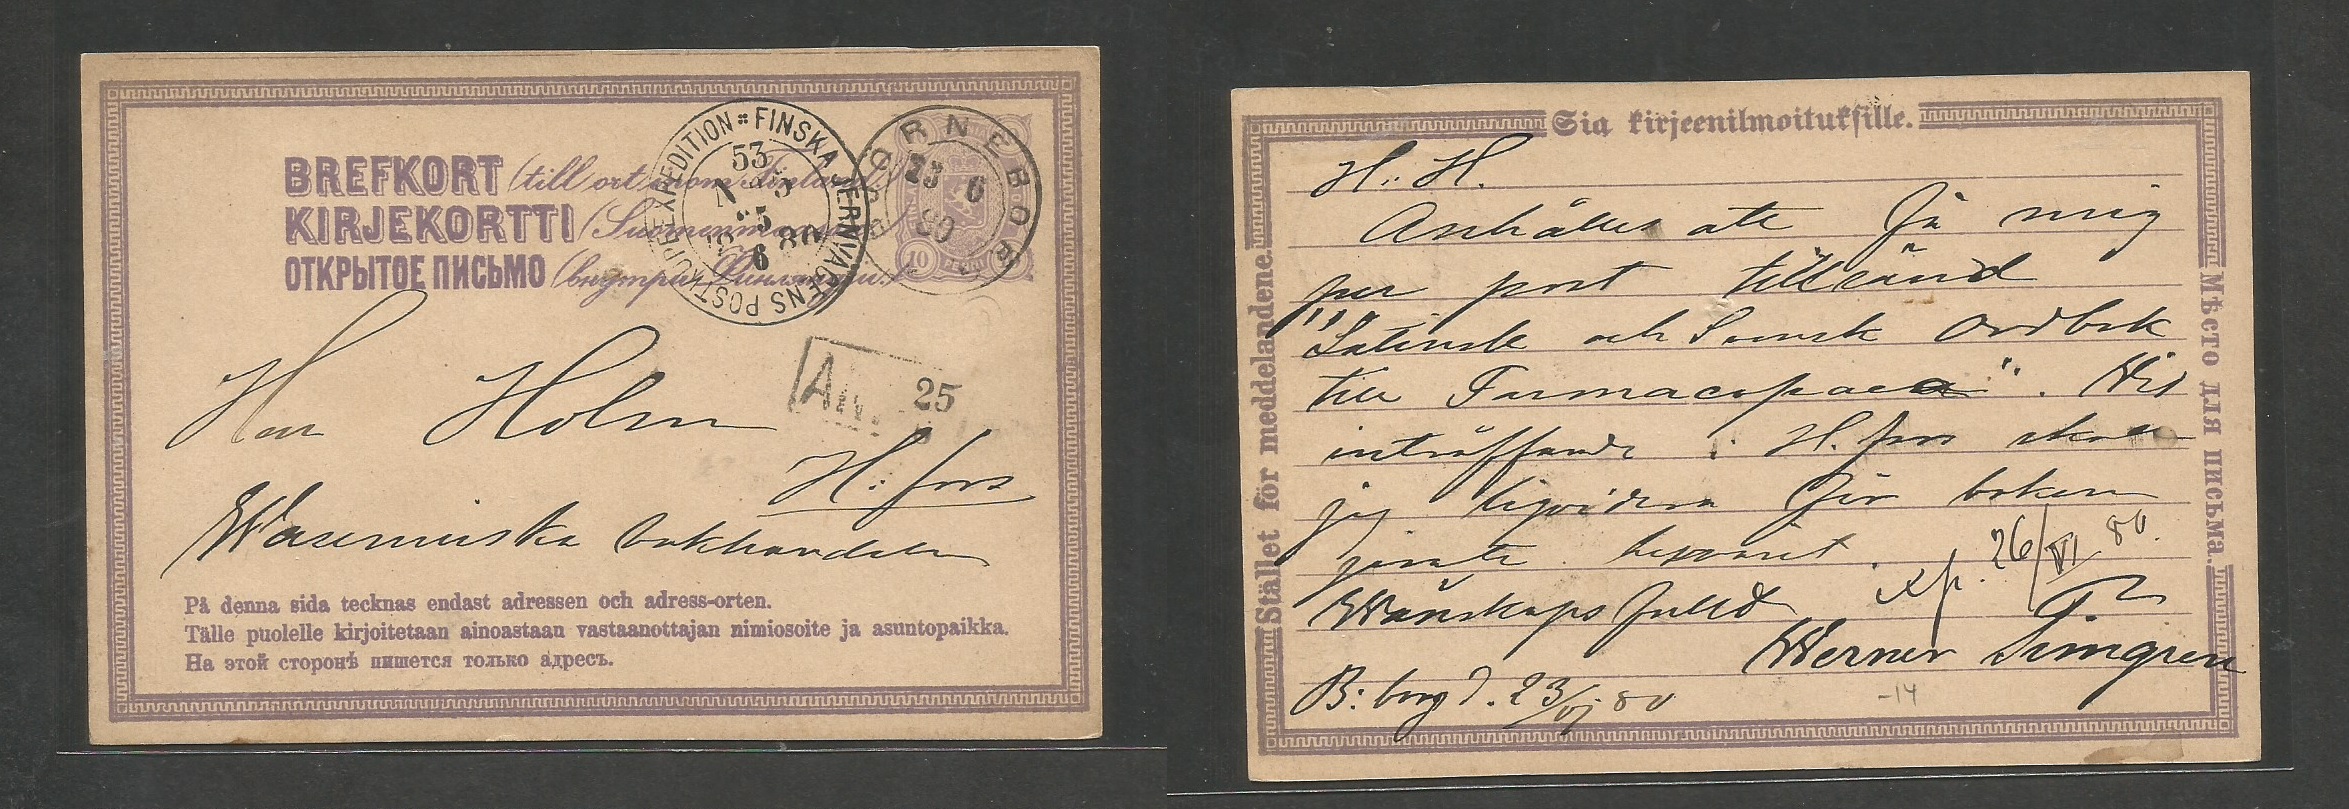 BREFKORT (till ort inom Finland)
KIRJEKORTTI (Suomenmaassa)
ОТКРЫТОЕ ПИСЬМО (внутри Финляндии)
FINSKA JERNVÄGENS POSTKUPÉEXPEDITION
53
25
6
80
BJÖRNEBORG
23 6
80
10 PENNI
Ank. 25
Herr Holm
H:fors
Waseniuska bokhandeln
På denna sida tecknas endast adressen och adress-orten.
Tälle puolelle kirjoitetaan ainoastaan vastaanottajan nimiosoite ja asuntopaikka.
На этой сторонѣ пишется только адресъ.
Sia kirjeenilmoituksille.
Stället för meddelandene.
Мѣсто для письма.
H. H.
Anhålles att få mig
per post tillsänd
"Latinsk och Svensk Ordbok
till Farmacopaea". Vid
inträffande i H.fors skall
jag liqvidera för boken
Wänskapsfullt
xp. 26/VI 80.
Werner
B:borg d. 23/VI 80
-14